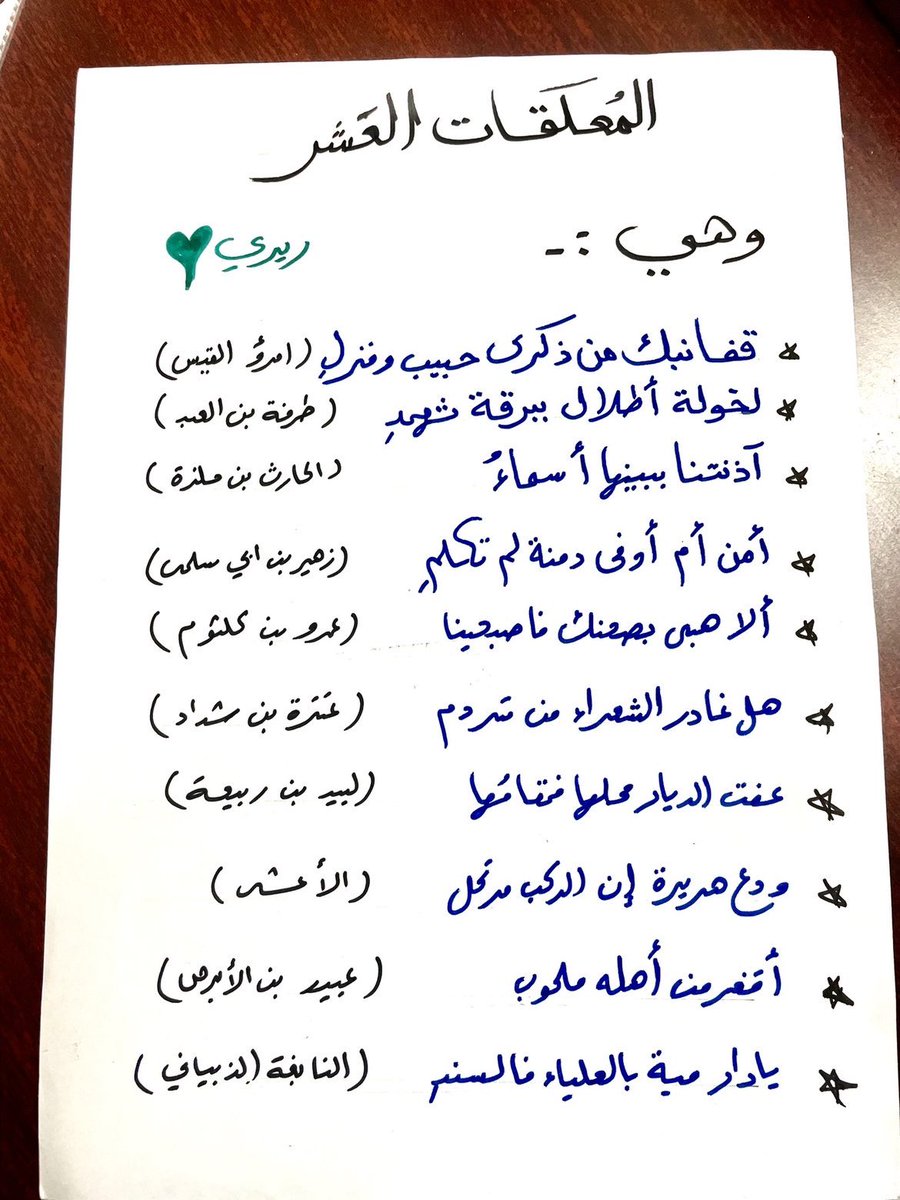 المُعلَقَات العَشر
وهي :-
ريري
قفا نبك من ذكرى حبيب ومنزلِ (امرؤ القيس)
لخولة أطلال ببرقة ثهمدِ (طرفة بن العبد)
آذنتنا ببينها أسماءُ (الحارث بن حلزة)
أمن أم أوفى دمنة لم تكلمِ (زهير بن ابي سلمى)
ألا هبي بصحنك فاصبحينا (عمرو بن كلثوم)
هل غادر الشعراء من متردم (عنترة بن شداد)
عفت الديار محلها فمقامُها (لبيد بن ربيعة)
ودع هريرة إن الركب مرتحل (الأعشى)
أقفر من أهله ملحوب (عبيد بن الأبرص)
يادار مية بالعلياء فالسندِ (النابغة الذبياني)